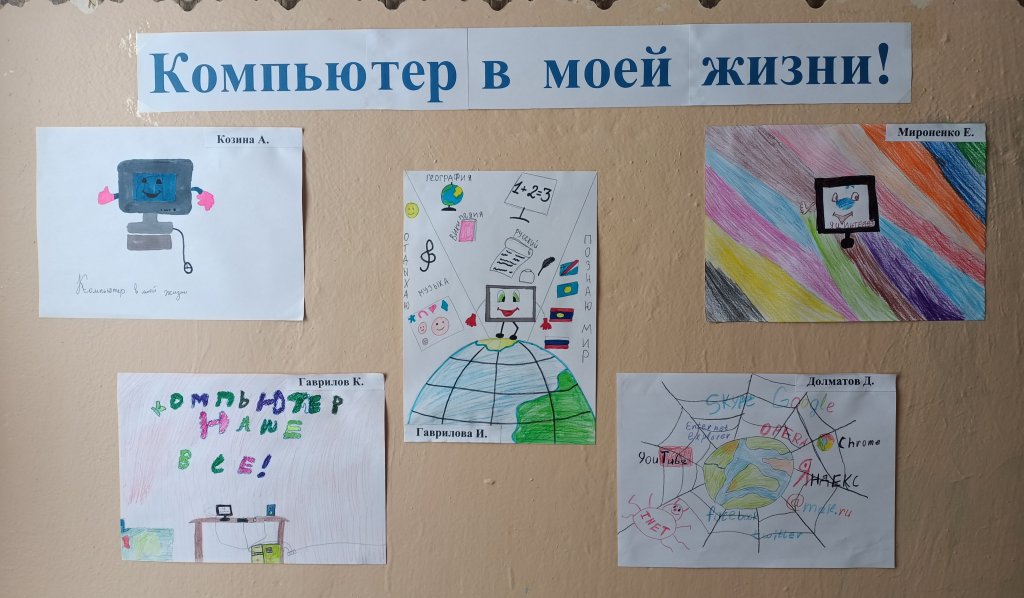 Компьютер в моей жизни!
Козина А.
Компьютер в моей жизни
ГЕОГРАФИЯ
1+2=3
РУССКИЙ
МУЗЫКА
ОТДЫХАЮ
ПОЗНАЮ МИР
Гаврилова И.
Мироненко Е.
Я и ИНТЕРНЕТ
Гаврилов К.
КОМПЬЮТЕР
НАШЕ
ВСЕ!
Долматов Д.
SKYPE Google
Enternet
explorer
OPERA
Chrome
YouTube
ЯНДЕКС
@mail.ru
INET
twitter